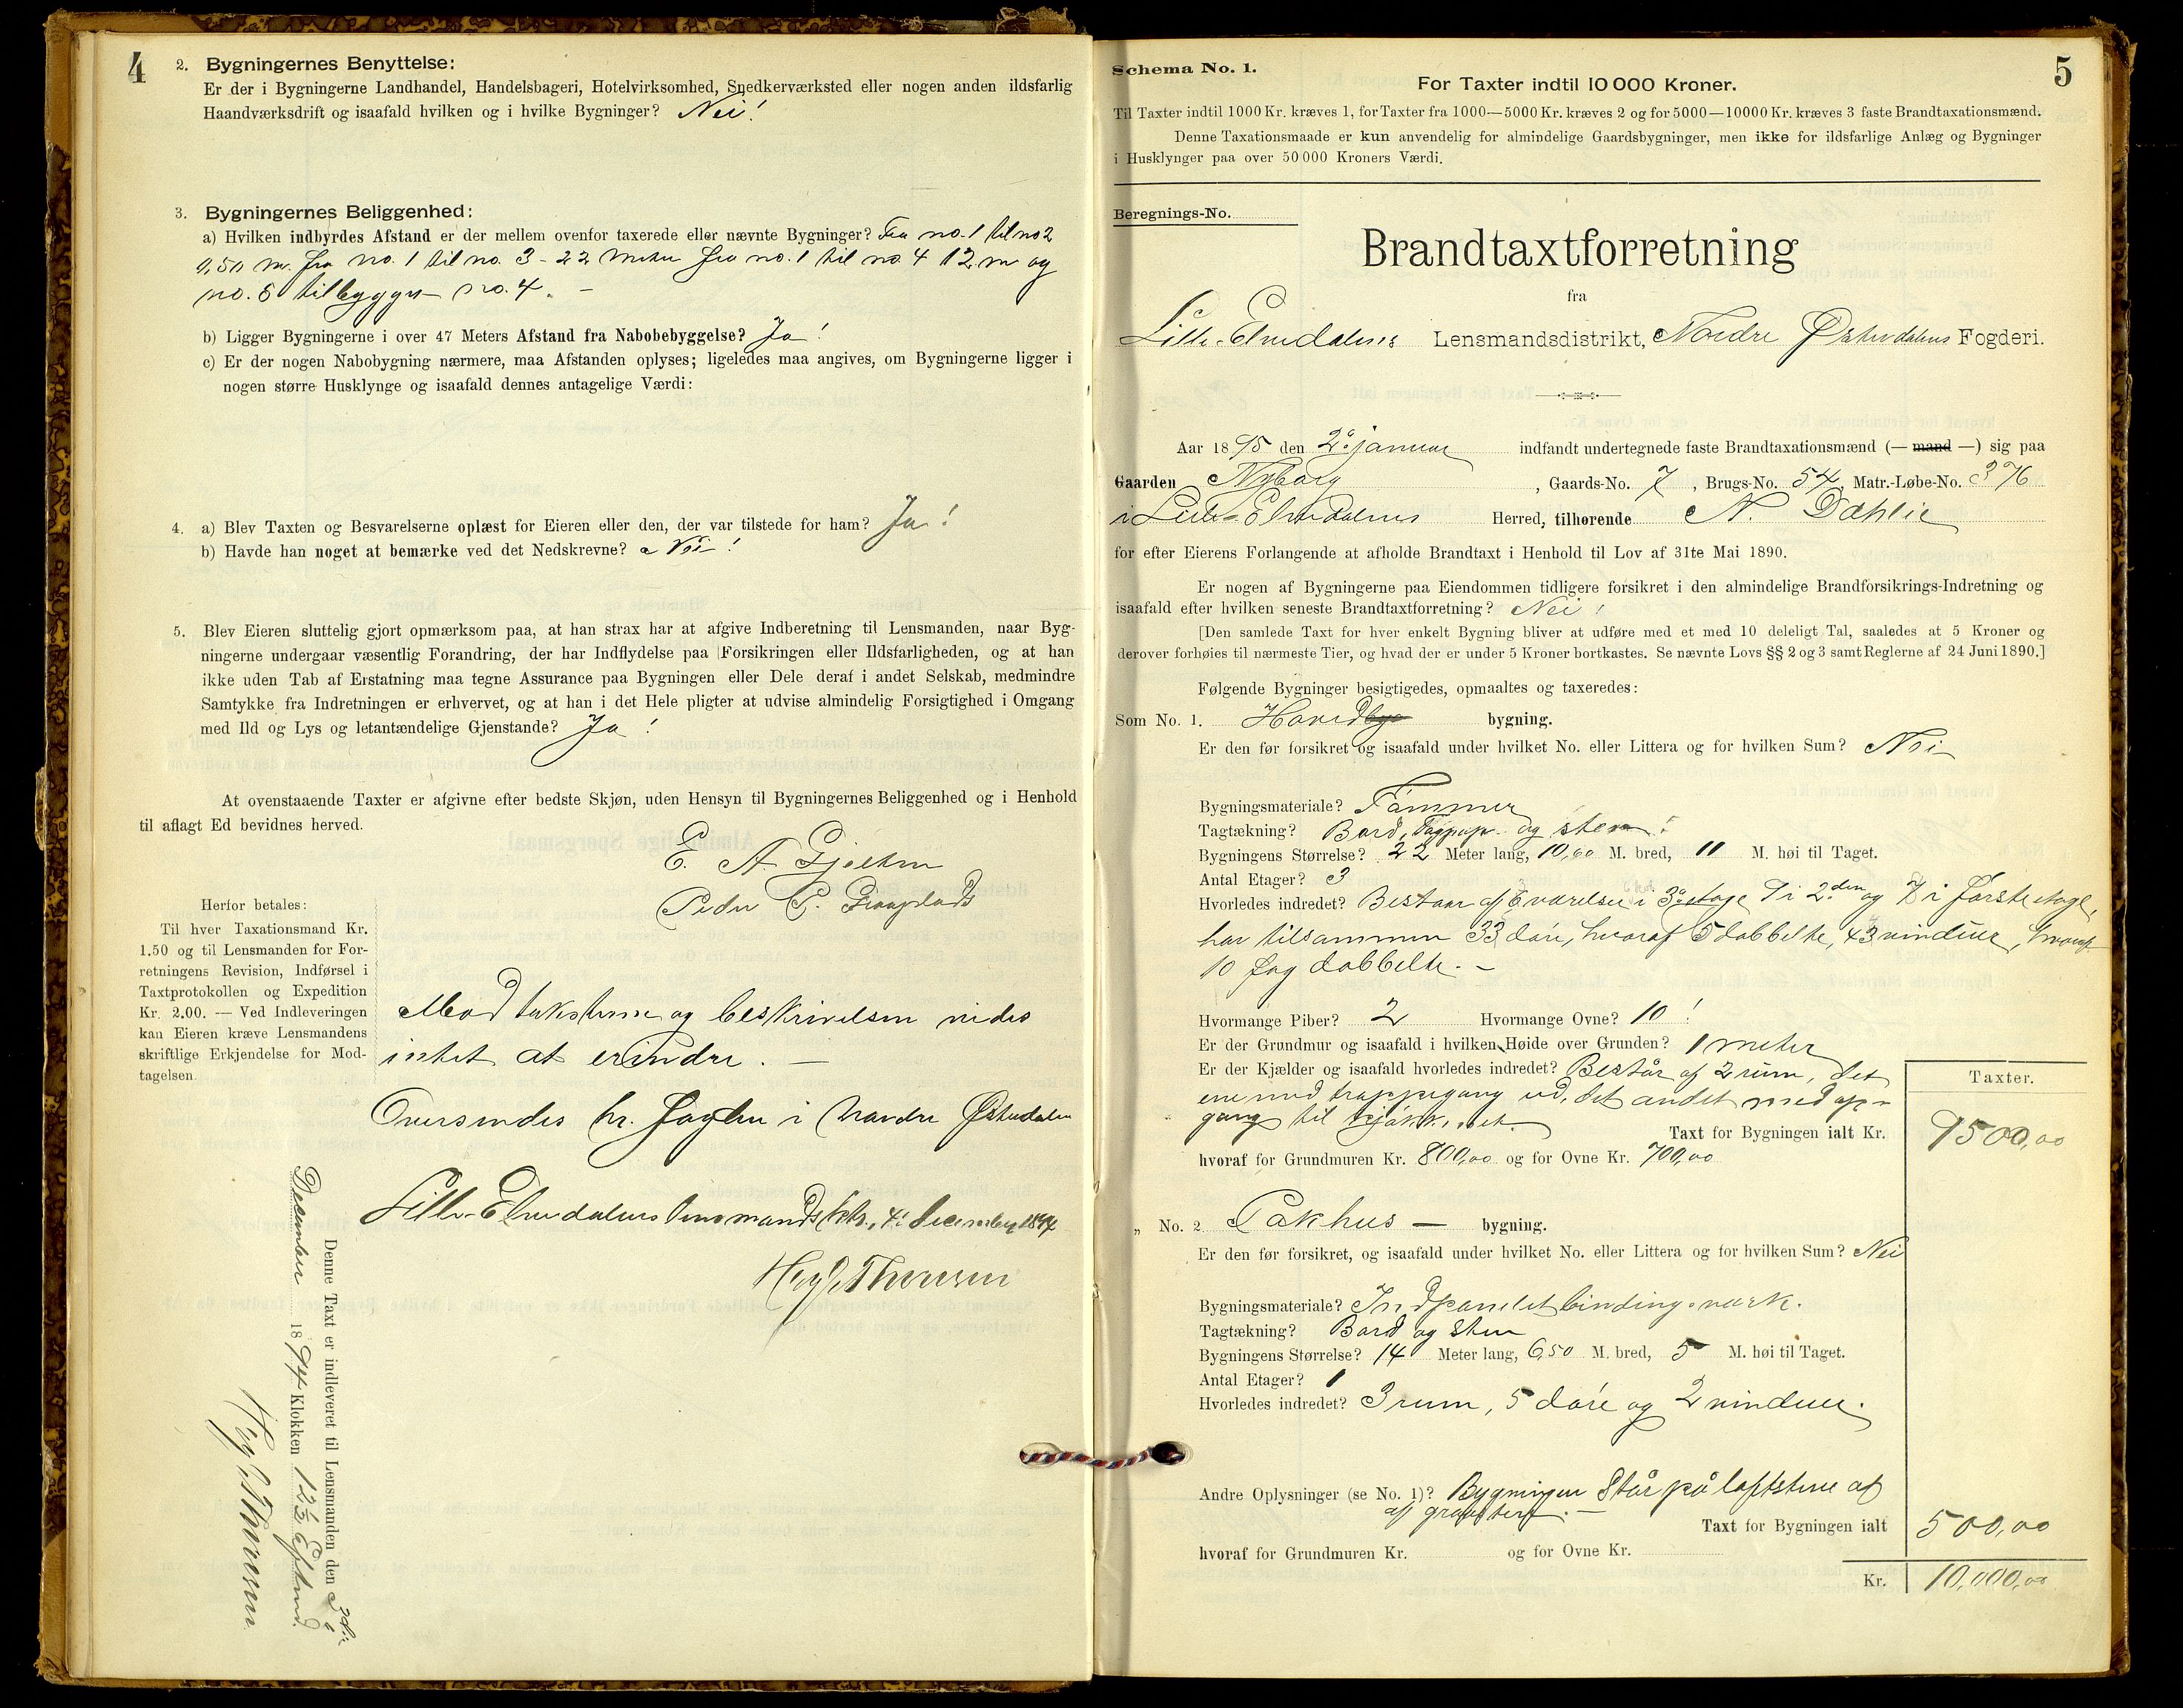 4
2. Bygningernes Benyttelse:
Er der i Bygningerne Landhandel, Handelsbageri, Hotelvirksomhed, Snedkerværksted eller nogen anden ildsfarlig
Haandværksdrift og isaafald hvilken og i hvilke Bygninger? Nei!
3. Bygningernes Beliggenhed:
a) Hvilken indbyrdes Afstand er der mellem ovenfor taxerede eller nævnte Bygninger? Fra no. 1 til no 2
9,50 m. fra no. 1 til no. 3 - 22 meter fra no. 1 til no. 4 12 m og
no. 5 tilbygget no. 4. -
b) Ligger Bygningerne i over 47 Meters Afstand fra Nabobebyggelse? Ja!
c) Er der nogen Nabobygning nærmere, maa Afstanden oplyses; ligeledes maa angives, om Bygningerne ligger i
nogen større Husklynge og isaafald dennes antagelige Værdi:
4. a) Blev Taxten og Besvarelserne oplæst for Eieren eller den, der var tilstede for ham? Ja!
b) Havde han noget at bemærke ved det Nedskrevne? Nei!
5. Blev Eieren sluttelig gjort opmærksom paa, at han strax har at afgive Indberetning til Lensmanden, naar Byg-
ningerne undergaar væsentlig Forandring, der har Indflydelse paa Forsikringen eller Ildsfarligheden, og at han
ikke uden Tab af Erstatning maa tegne Assurance paa Bygningen eller Dele deraf i andet Selskab, medmindre
Samtykke fra Indretningen er erhvervet, og at han i det Hele pligter at udvise almindelig Forsigtighed i Omgang
med Ild og Lys og letantændelige Gjenstande? Ja!
At ovenstaaende Taxter er afgivne efter bedste Skjøn, uden Hensyn til Bygningernes Beliggenhed og i Henhold
til aflagt Ed bevidnes herved.
E. A. Gjelten
Peder P.
Herfor betales:
Til hver Taxationsmand Kr.
1.50 og til Lensmanden for For-
retningens Revision, Indførsel i
Taxtprotokollen og Expedition
Kr. 2.00. — Ved Indleveringen
kan Eieren kræve Lensmandens
skriftlige Erkjendelse for Mod-
tagelsen.
Mod taksten og beskrivelsen vides
intet at erindre. —
Oversendes hr. fogden i Nordre Østerdalen
Lille-Elvedalens lensmandsktr., 4. december 1894
Thoresen
Denne Taxt er indleveret til Lensmanden den 3die
December 1894 Klokken 12½ Efterm.
Thoresen
5
Schema No. 1.
For Taxter indtil 10 000 Kroner.
Til Taxter indtil 1000 Kr. kræves 1, for Taxter fra 1000—5000 Kr. kræves 2 og for 5000—10000 Kr. kræves 3 faste Brandtaxationsmænd.
Denne Taxationsmaade er kun anvendelig for almindelige Gaardsbygninger, men ikke for ildsfarlige Anlæg og Bygninger
i Husklynger paa over 50 000 Kroners Værdi.
Beregnings-No.
Brandtaxtforretning
fra
Lille-Elvedalens Lensmandsdistrikt, Nordre Østerdalens Fogderi.
Aar 1895 den 2. januar indfandt undertegnede faste Brandtaxationsmænd (— mand —) sig paa
Gaarden Nyborg, Gaards-No. 7, Brugs-No. 54, Matr.-Løbe-No. 376
i Lille-Elvedalens Herred, tilhørende N. Dæhlie
for efter Eierens Forlangende at afholde Brandtaxt i Henhold til Lov af 31te Mai 1890.
Er nogen af Bygningerne paa Eiendommen tidligere forsikret i den almindelige Brandforsikrings-Indretning og
isaafald efter hvilken seneste Brandtaxtforretning? Nei!
[Den samlede Taxt for hver enkelt Bygning bliver at udføre med et med 10 deleligt Tal, saaledes at 5 Kroner og
derover forhøies til nærmeste Tier, og hvad der er under 5 Kroner bortkastes. Se nævnte Lovs §§ 2 og 3 samt Reglerne af 24 Juni 1890.]
Følgende Bygninger besigtigedes, opmaaltes og taxeredes:
Som No. 1. Hovedbyg bygning.
Er den før forsikret og isaafald under hvilket No. eller Littera og for hvilken Sum? Nei
Bygningsmateriale? Tømmer
Tagtækning? Bord, Tagpap og sten!
Bygningens Størrelse? 22 Meter lang, 10,60 M. bred, 11 M. høi til Taget.
Antal Etager? 3
Hvorledes indredet? Bestaar af 6 værelser i 3. etage 9 i 2.den og 7 i første etage,
har tilsammen 33 døre, hvoraf 5 dobbelte, 43 vinduer, hvoraf
10 fag dobbelte. -
Hvormange Piber? 2 Hvormange Ovne? 10!
Er der Grundmur og isaafald i hvilken Høide over Grunden? 1 meter
Er der Kjælder og isaafald hvorledes indredet? Består af 2 rum, det
ene med trappegang ud, det andet med op-
gang til kjøkkenet.
Taxter.
Taxt for Bygningen ialt Kr. 9500,00
hvoraf for Grundmuren Kr. 800,00 og for Ovne Kr. 700,00
„ No. 2 Pakhus — bygning.
Er den før forsikret, og isaafald under hvilket No. eller Littera og for hvilken Sum? Nei
Bygningsmateriale? Indpanelet bindingsværk.
Tagtækning? Bord og sten
Bygningens Størrelse? 14 Meter lang, 6,50 M. bred, 5 M. høi til Taget.
Antal Etager? 1
Hvorledes indredet? 3 rum, 5 døre og 2 vinduer.
Andre Oplysninger (se No. 1)? Bygningen står på løftstene af
af gråsten. -
Taxt for Bygningen ialt 500,00
hvoraf for Grundmuren Kr. og for Ovne Kr.
Kr. 10,000,00